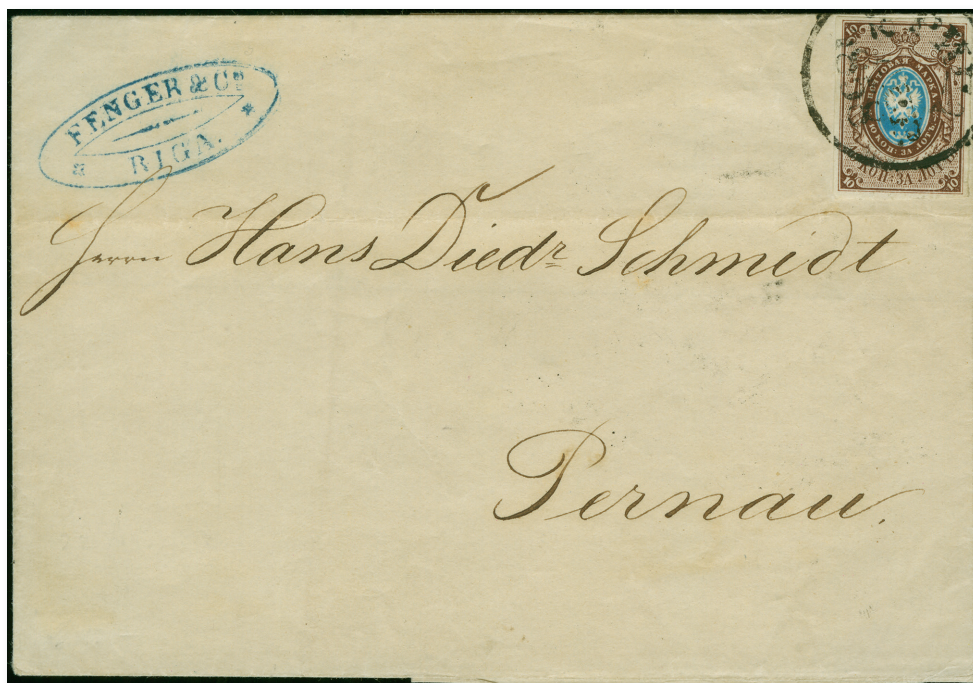 FENGER & Co
RIGA.
ПОЧТОВАЯ МАРКА
10 КОП: ЗА ЛОТЪ
10 КОП: ЗА ЛОТЪ
Herrn Hans Diedr. Schmidt
Pernau.